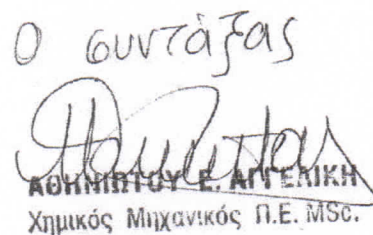 Ο συντάξας
ΑΘΗΝΙΩΤΟΥ Ε. ΑΓΓΕΛΙΚΗ
Χημικός Μηχανικός Π.Ε. MSc.